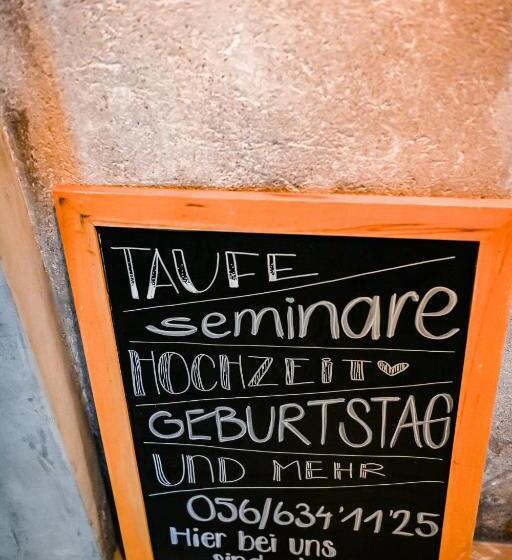 TAUFE
seminare
HOCHZEIT
GEBURTSTAG
UND MEHR
056/634'11'25
Hier bei uns